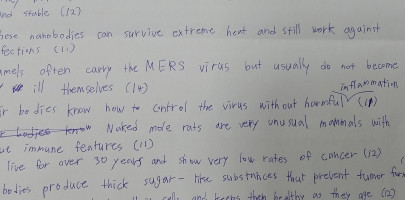 and stable (12)
hese nanobodies can survive extreme heat and still work against
fections (11)
amels often carry the MERS virus but usually do not become
ill themselves (14)
inflammation
ir bodies know how to control the virus without harmful (11)
bodies know Naked mole rats are very unusual mammals with
ut immune features (11)
live for over 30 years and show very low rates of cancer (12)
bodies produce thick sugar-like substances that prevent tumor for
cells and keeps them healthy as they age (12)